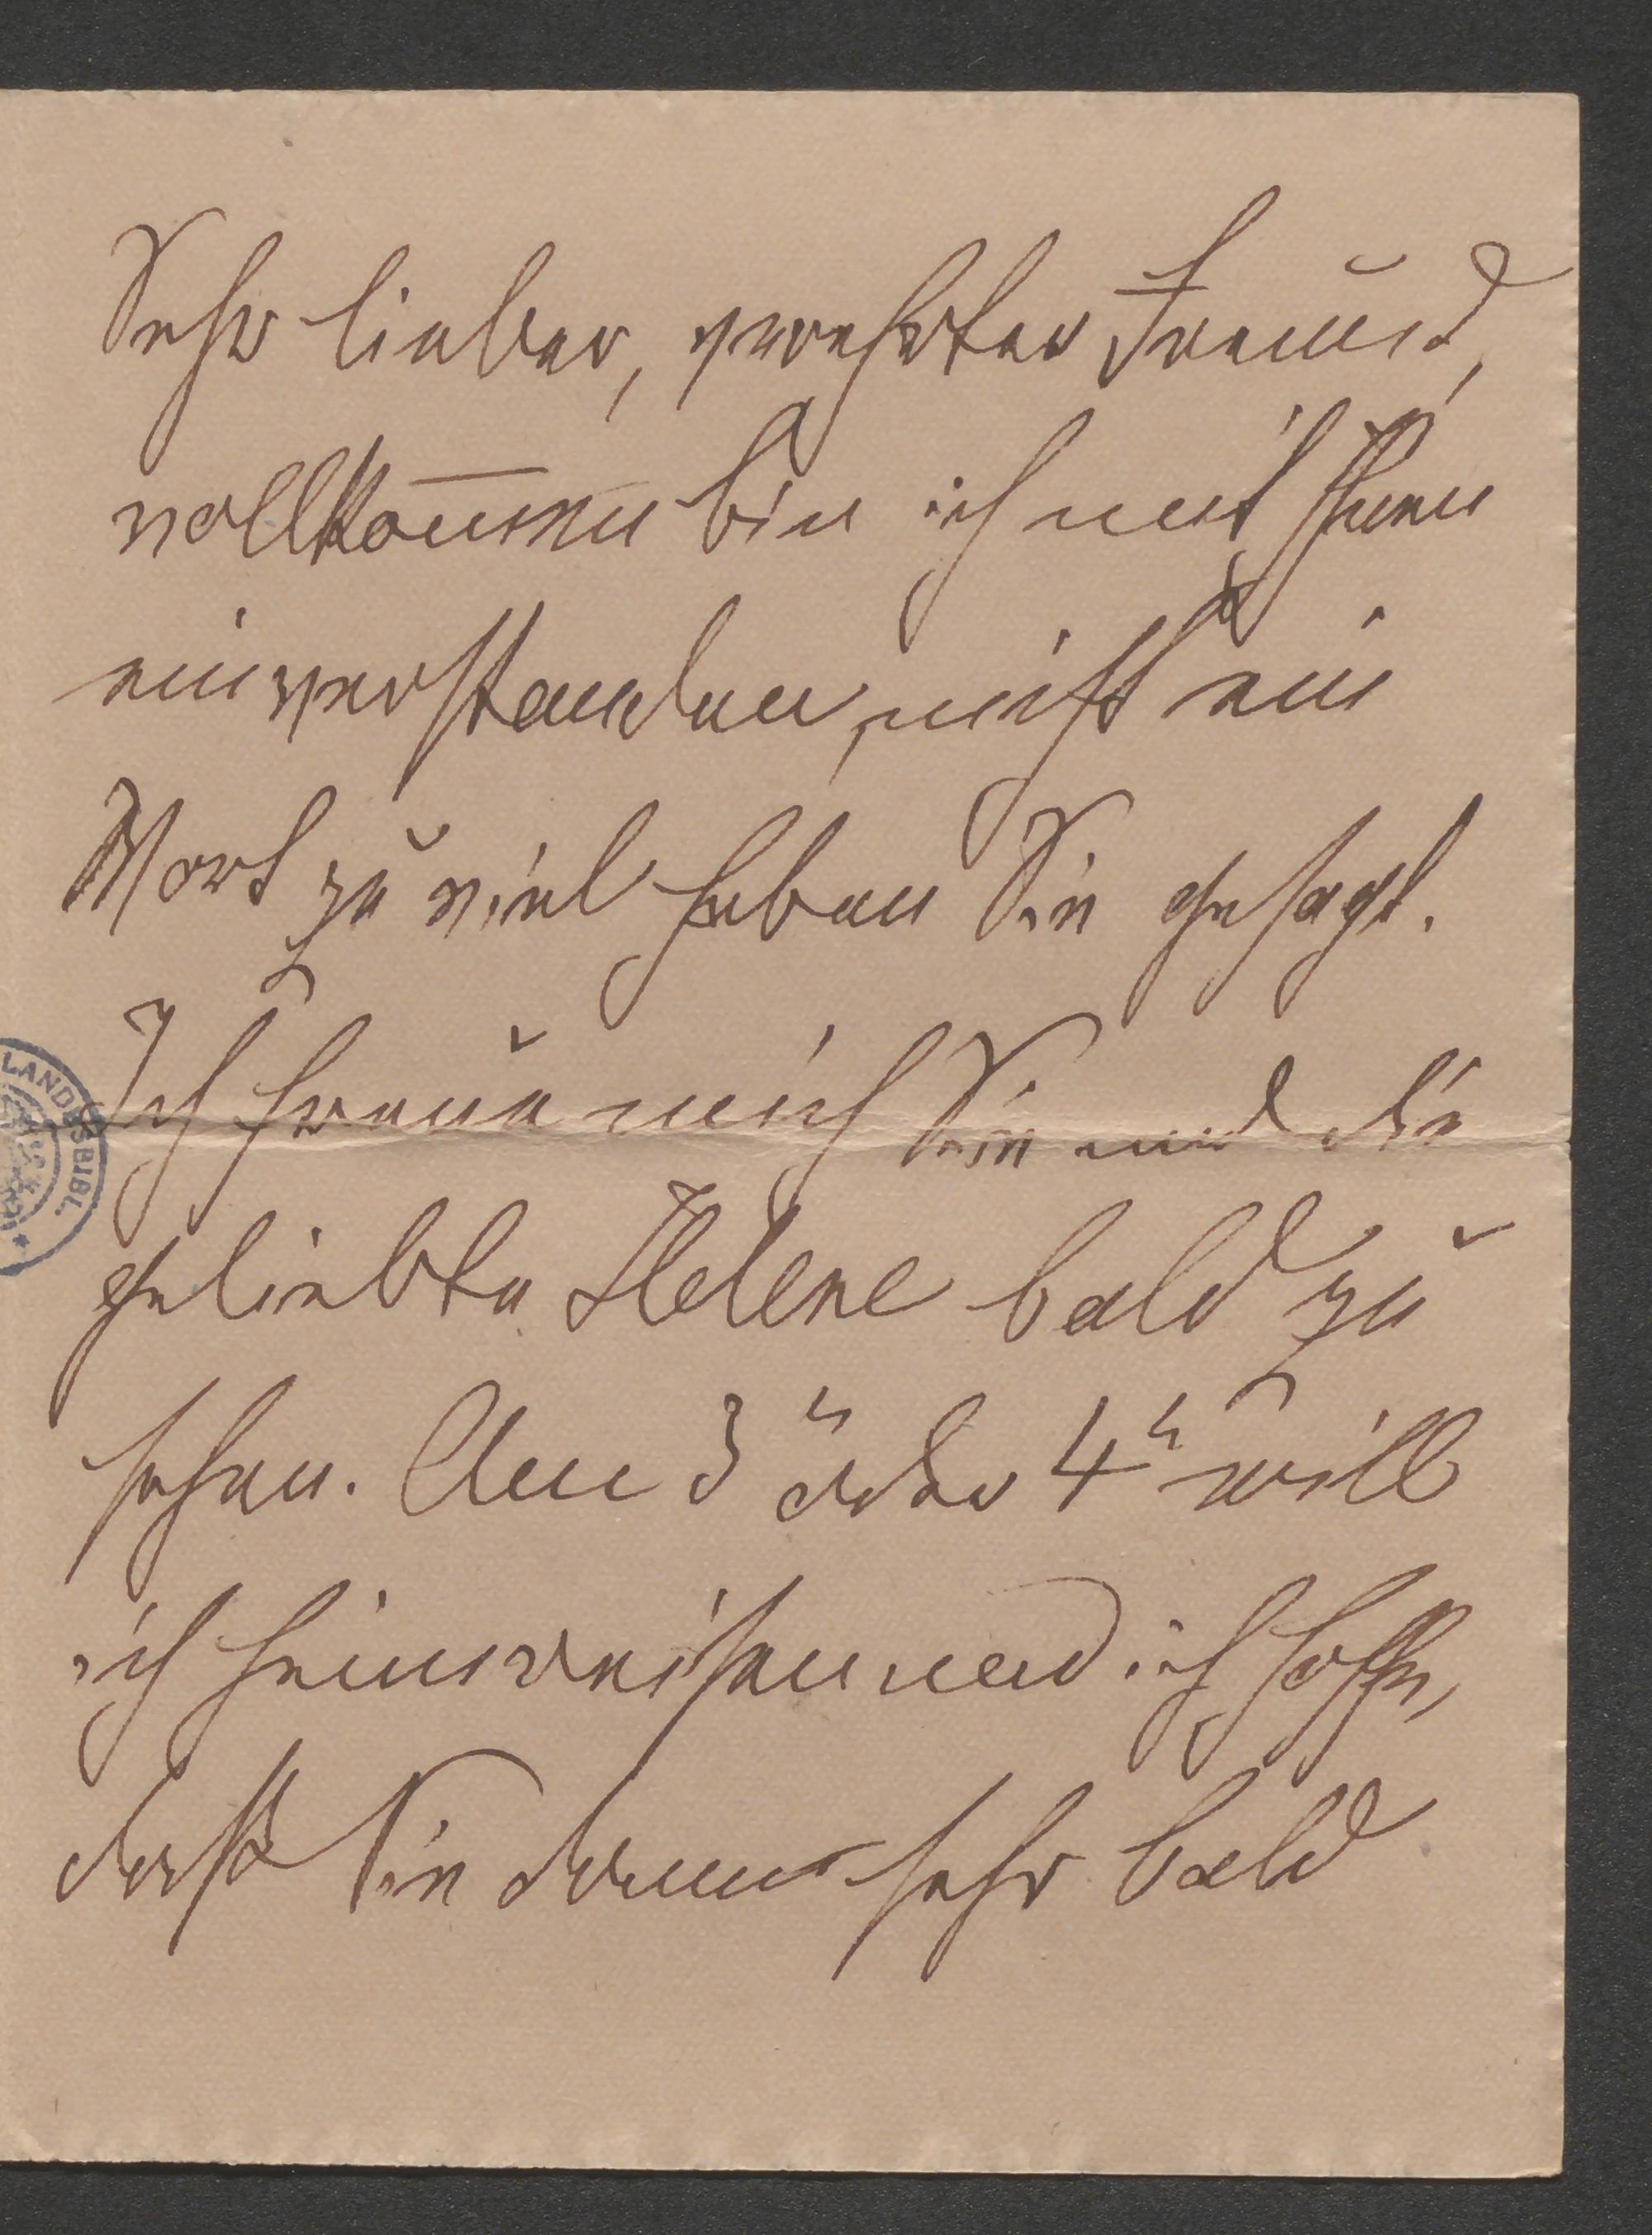 Sehr lieber, verehrter Freund,
vollkom̅men bin ich mit Ihnen
einverstanden, nicht ein
Wort zu viel haben Sie gesagt.
Ich freue mich Sie und die
geliebte Helene bald zu
sehen. Am 3n oder 4n will
ich heimreisen und ich hoffe,
daß Sie dann sehr bald
LANDESBIBL.